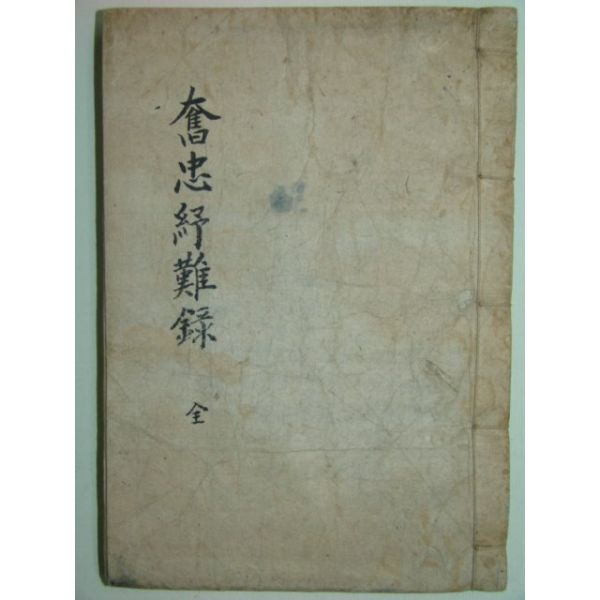 奮忠紓難錄
全